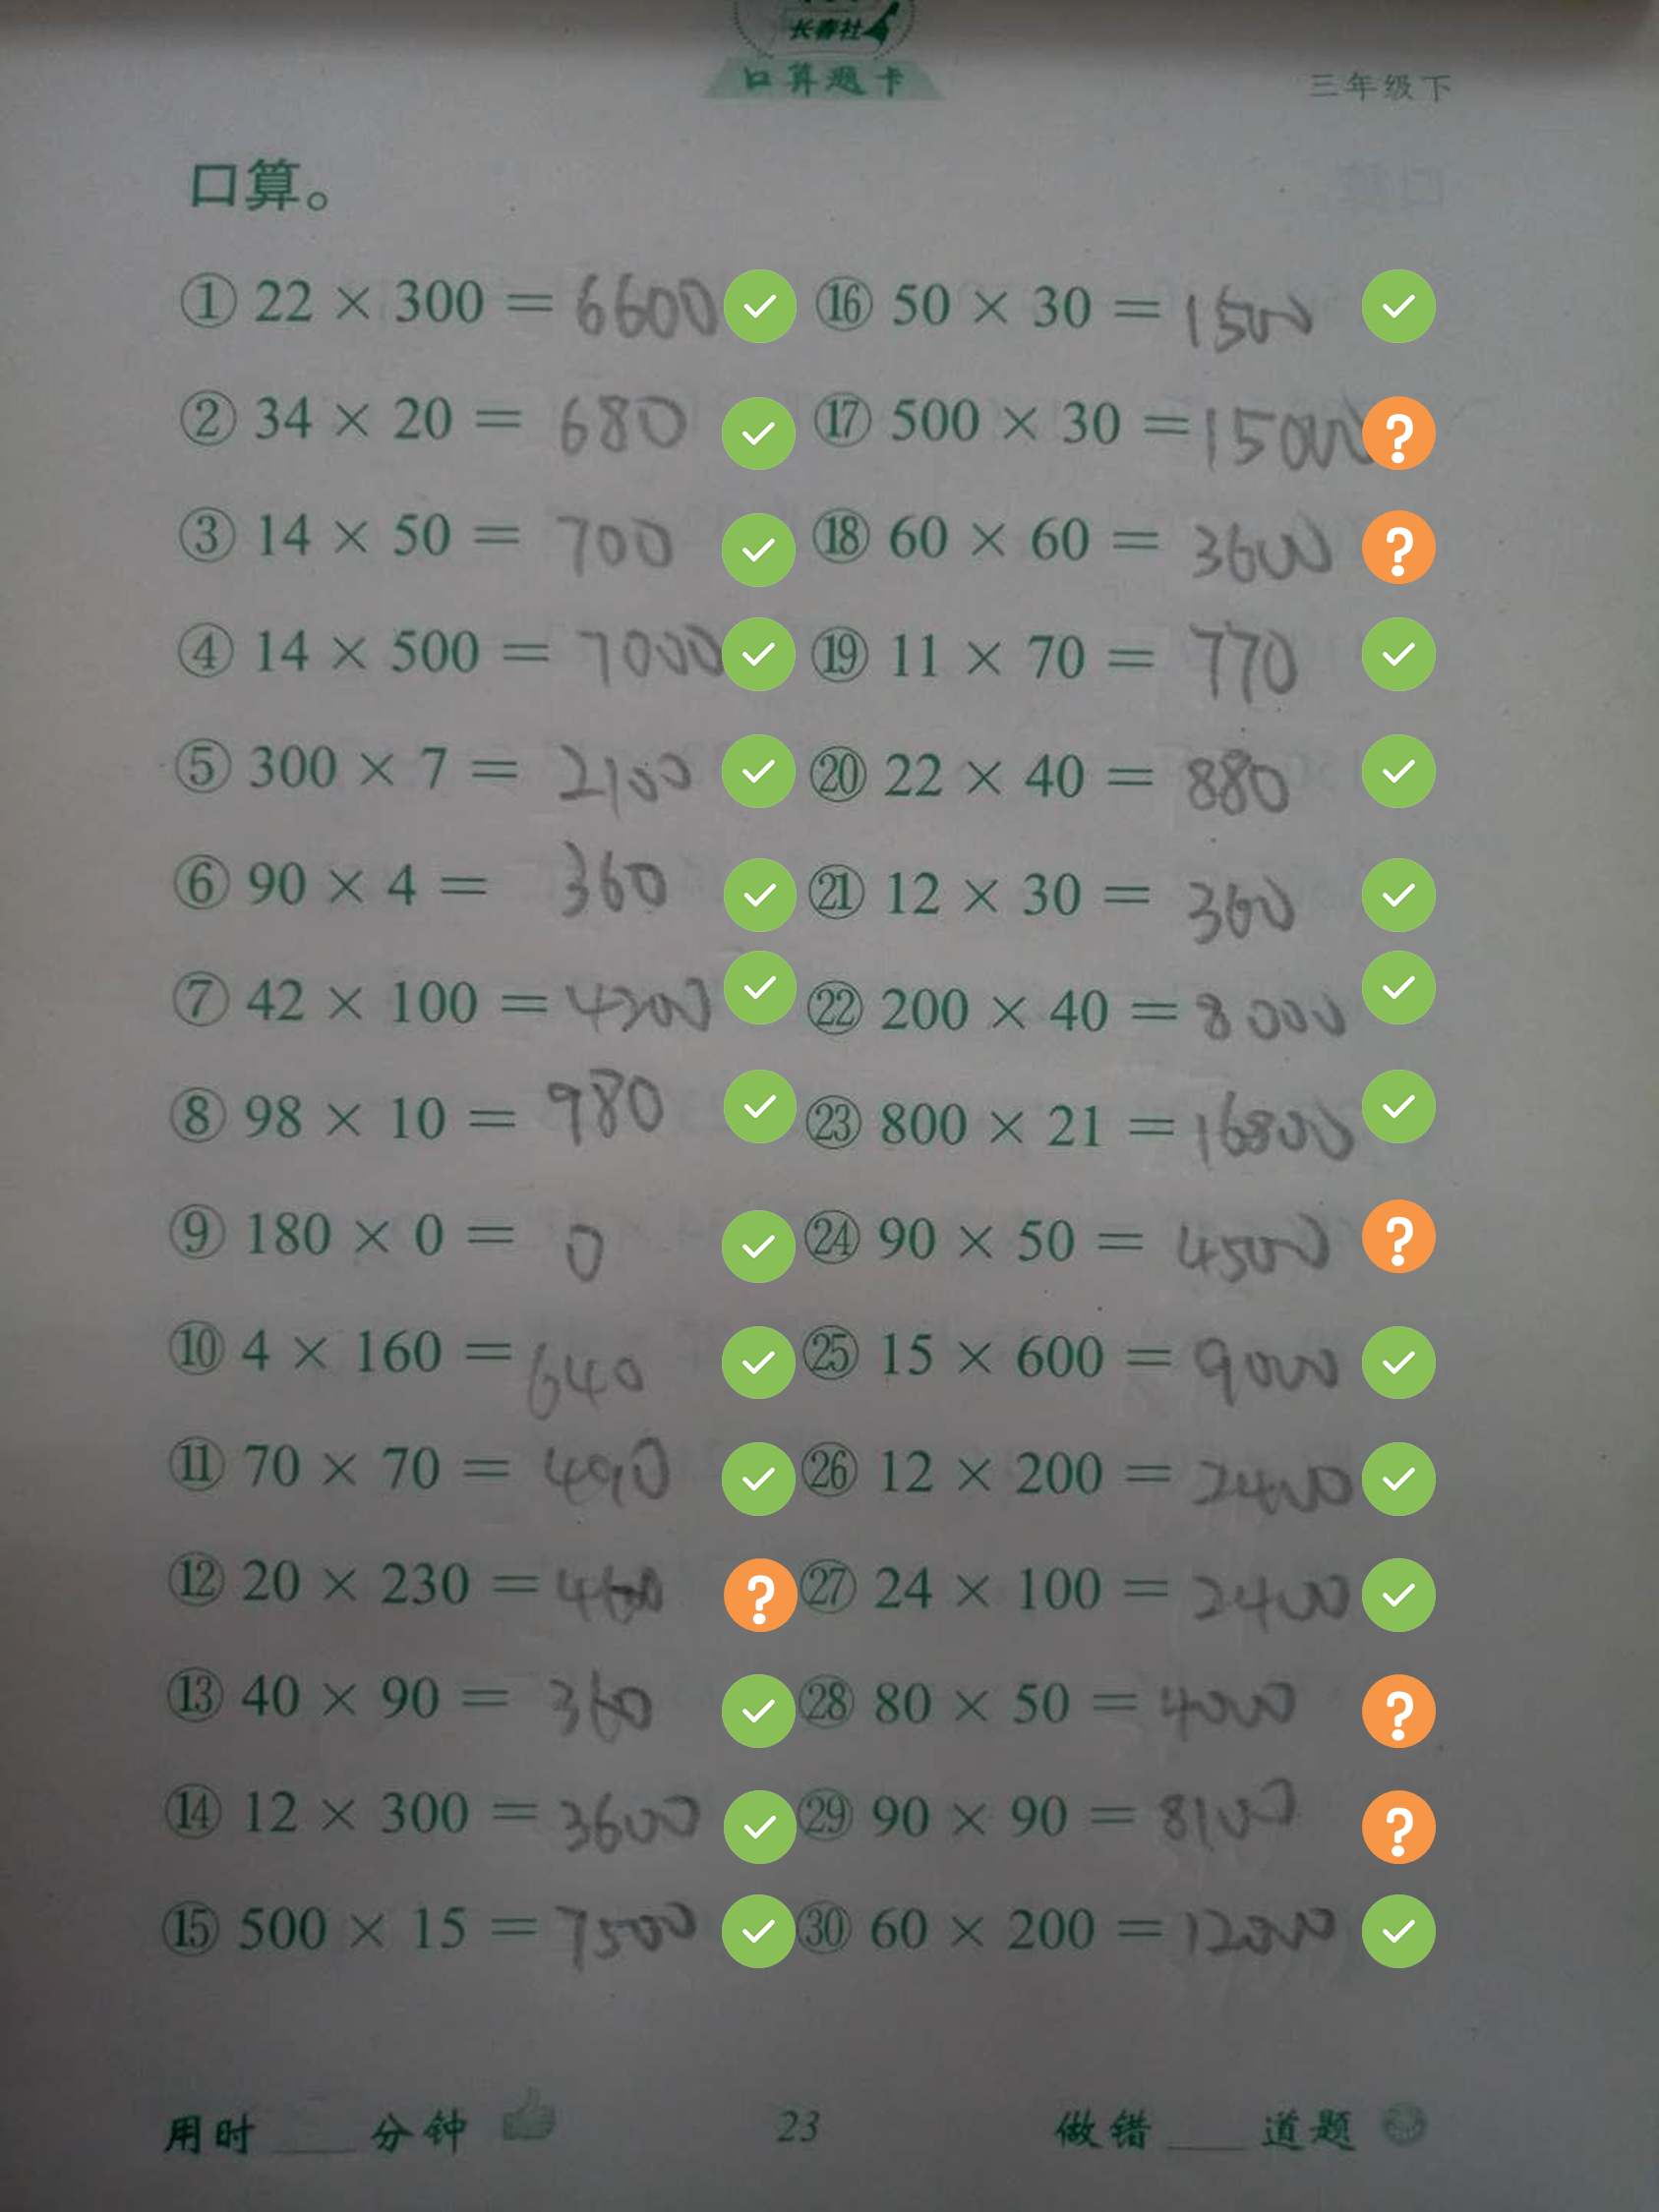 长春社
口算题卡
三年级下
口算。
① 22 × 300 = 6600
② 34 × 20 = 680
③ 14 × 50 = 700
④ 14 × 500 = 7000
⑤ 300 × 7 = 2100
⑥ 90 × 4 = 360
⑦ 42 × 100 =
⑧ 98 × 10 = 980
⑨ 180 × 0 = 0
⑩ 4 × 160 = 640
⑪ 70 × 70 = 490
⑫ 20 × 230 =
⑬ 40 × 90 = 360
⑭ 12 × 300 = 3600
⑮ 500 × 15 = 7500
⑯ 50 × 30 = 1500
⑰ 500 × 30 = 15000
⑱ 60 × 60 = 3600
⑲ 11 × 70 = 770
⑳ 22 × 40 = 880
㉑ 12 × 30 = 360
㉒ 200 × 40 = 8000
㉓ 800 × 21 = 16800
㉔ 90 × 50 = 4500
㉕ 15 × 600 = 9000
㉖ 12 × 200 = 2400
㉗ 24 × 100 = 2400
㉘ 80 × 50 = 4000
㉙ 90 × 90 = 8100
㉚ 60 × 200 = 12000
用时 ___ 分钟
23
做错 ___ 道题